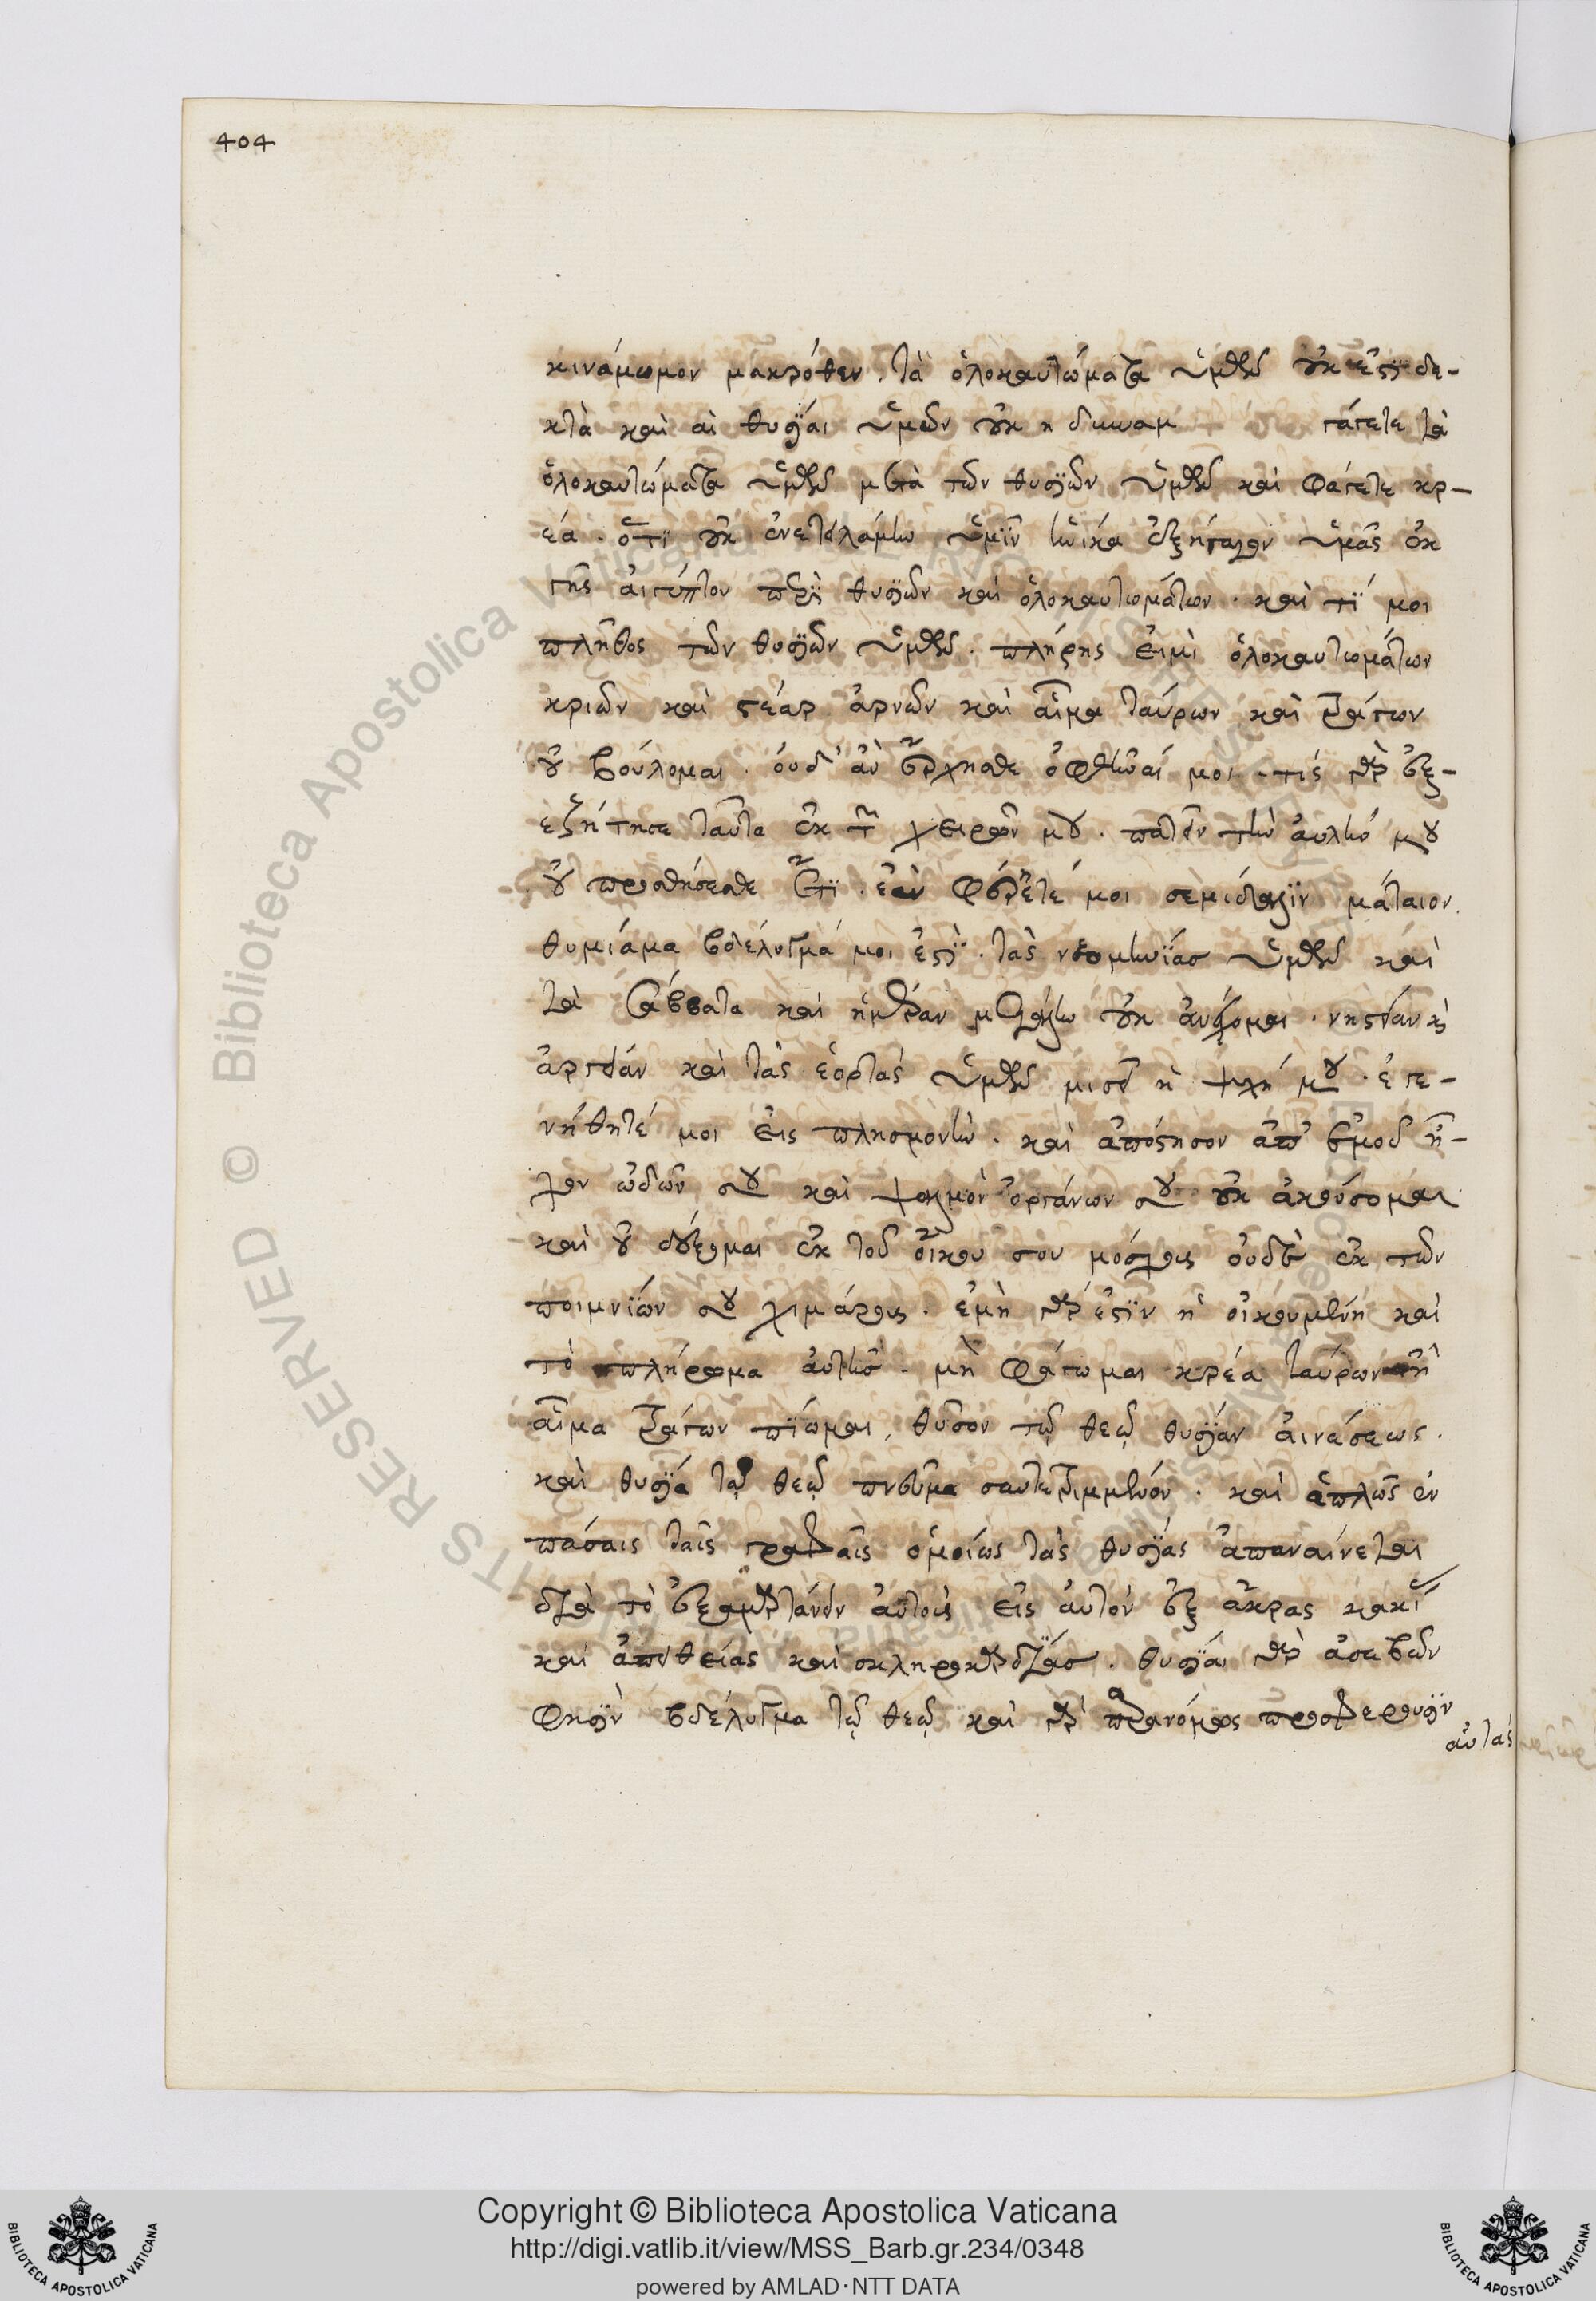 404
κινάμωμον μακρόθεν. τὰ ὁλοκαυτώματα ὑμῶν οὐκ ἐστι δε-
κτὰ καὶ αἱ θυσίαι ὑμῶν οὐχ ἡδυναμ τάγετε τὰ
ὁλοκαυτώματα ὑμῶν μετὰ τῶν θυσιῶν ὑμῶν καὶ φάγετε κρ-
έα. ὅτι οὐκ ἐνετειλάμην ὑμῖν ἡνίκα ἐξήγαγον ὑμᾶς ἐκ
της αἰγύπτου περὶ θυσιῶν καὶ ὁλοκαυτωμάτων. καὶ τί μοι
πλῆθος τῶν θυσιῶν ὑμῶν. πλήρης εἰμὶ ὁλοκαυτωμάτων
κριῶν καὶ στέαρ ἀρνῶν καὶ αἷμα ταύρων καὶ τράγων
οὐ βούλομαι. οὐδ' ἂν ἔρχησθε ὀφθῆναί μοι. τίς γὰρ ἐξ-
εζήτησε ταῦτα ἐκ τῶν χειρῶν μου. πατεῖν τὴν αὐλήν μου
οὐ προσθήσεσθε ἔτι. ἐὰν φέρετέ μοι σεμίδαλιν μάταιον.
θυμίαμα βδέλυγμά μοι ἐστί. τὰς νεομηνίας ὑμῶν καὶ
τὰ σάββατα καὶ ἡμέραν μεγάλην οὐκ ἀνέχομαι. νηστείαν κὶ
ἀργείαν καὶ τὰς ἑορτὰς ὑμῶν μισεῖ ἡ ψυχή μου. ἐγε-
νήθητέ μοι εἰς πλησμονὴν. καὶ ἀπόστησον ἀπ' ἐμοῦ ἦ-
χον ᾠδῶν σου καὶ ψαλμὸν ὀργάνων σου οὐκ ἀκούσομαι
καὶ οὐ δέξομαι ἐκ τοῦ οἴκου σου μόσχους οὐδὲ ἐκ τῶν
ποιμνίων σου χιμάρους. ἐμὴ γάρ ἐστιν ἡ οἰκουμένη καὶ
τὸ πλήρωμα αὐτῆς. μὴ φάγωμαι κρέα ταύρων ἢ
αἷμα τράγων πίωμαι, θῦσον τῷ θεῷ θυσίαν αἰνέσεως.
καὶ θυσία τῷ θεῷ πνεῦμα συντετριμμένον. καὶ ἁπλῶς ἐν
πάσαις ταῖς γραφαῖς ὁμοίως τὰς θυσίας ἀπαναίνεται
διὰ τὸ ἐξαμαρτάνειν αὐτοὺς εἰς αὐτὸν ἐξ ἄκρας κακί
καὶ ἀπειθείας καὶ σκληροκαρδίας. θυσίαι γὰρ ἀσεβῶν
φησὶν βδέλυγμα τῷ θεῷ καὶ γὰρ παρανόμως προσφέρουσιν
αὐτάς
Copyright © Biblioteca Apostolica Vaticana
http://digi.vatlib.it/view/MSS_Barb.gr.234/0348
powered by AMLAD·NTT DATA